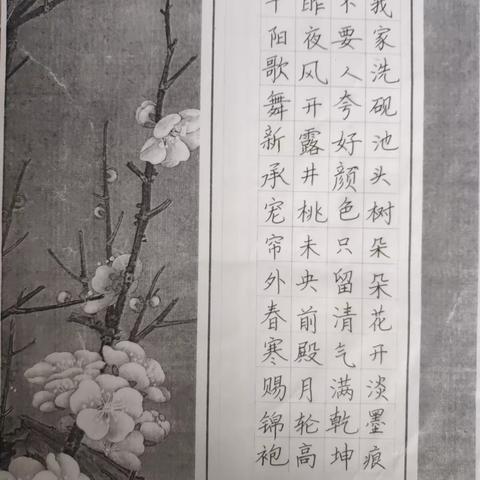 我家洗砚池头树朵朵花开淡墨痕
不要人夸好颜色只留清气满乾坤
昨夜风开露井桃未央前殿月轮高
平阳歌舞新承宠帘外春寒赐锦袍